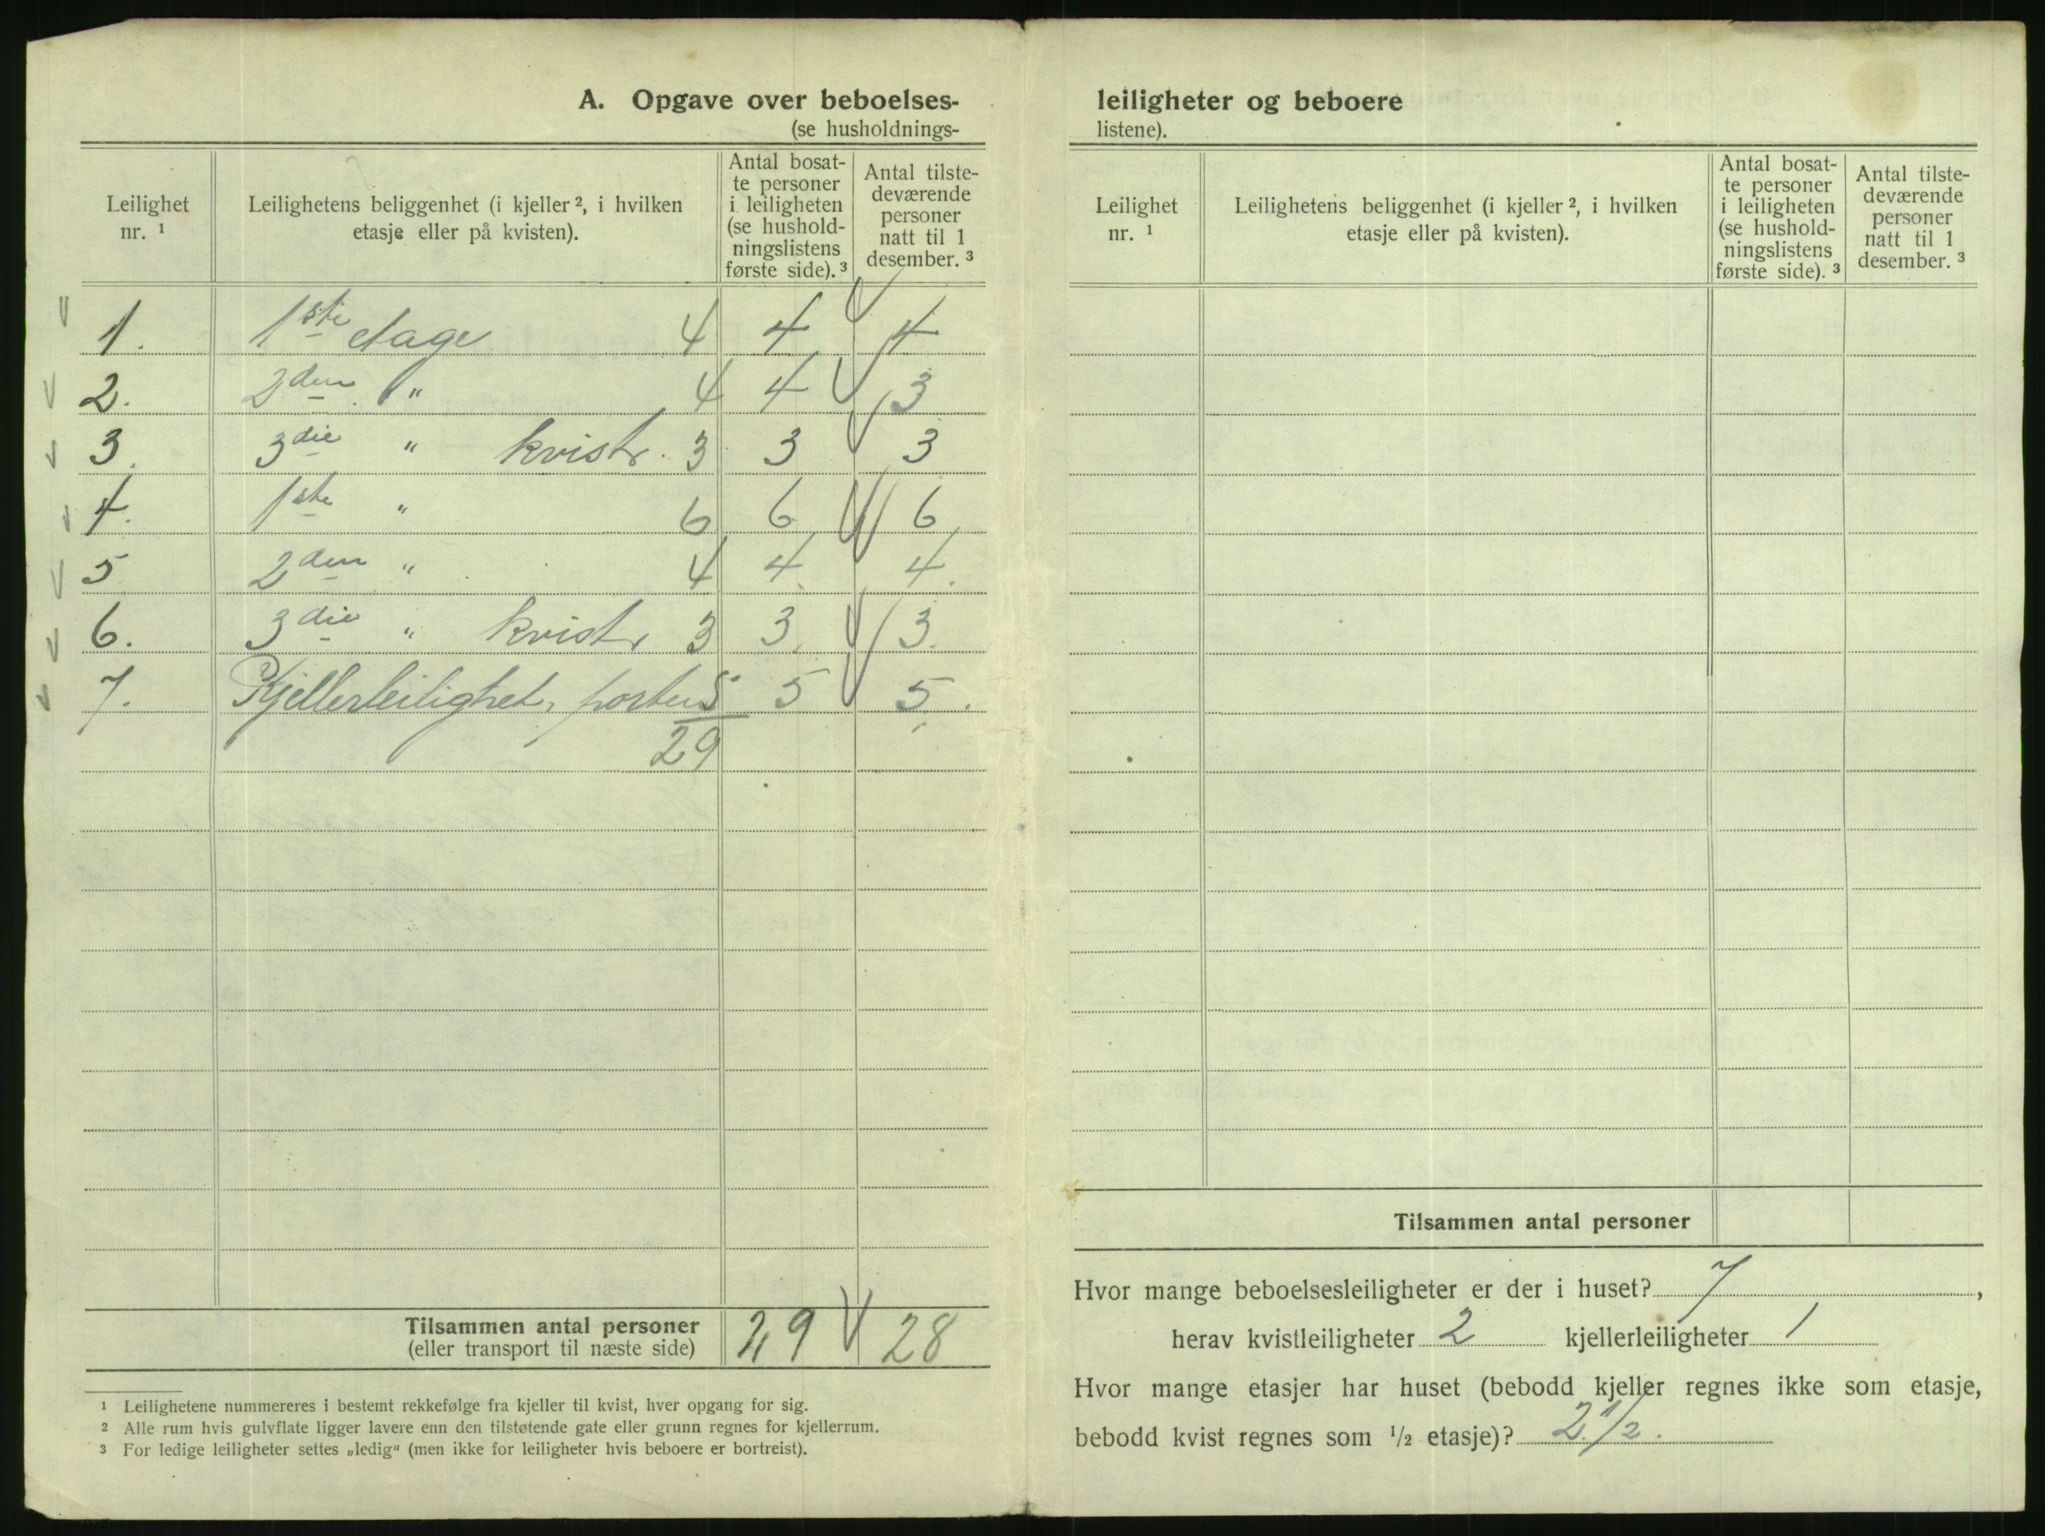 A. Opgave over beboelses-
(se husholdnings-
Leilighet nr. ¹
Leilighetens beliggenhet (i kjeller ², i hvilken etasje eller på kvisten).
Antal bosat-
te personer
i leiligheten
(se hushold-
ningslistens
første side). ³
Antal tilste-
deværende
personer
natt til 1
desember. ³
1. 1ste etage 4 4 4
2. 2den " 4 4 3
3. 3die " kvist. 3 3 3
4. 1ste " 6 6 6
5 2den " 4 4 4.
6. 3die " kvist. 3 3. 3.
7. Kjellerleilighet, porten 5 5 5.
29
Tilsammen antal personer 29 28
(eller transport til næste side)
¹ Leilighetene nummereres i bestemt rekkefølge fra kjeller til kvist, hver opgang for sig.
² Alle rum hvis gulvflate ligger lavere enn den tilstøtende gate eller grunn regnes for kjellerrum.
³ For ledige leiligheter settes „ledig“ (men ikke for leiligheter hvis beboere er bortreist).
leiligheter og beboere
listene).
Leilighet nr. ¹
Leilighetens beliggenhet (i kjeller ², i hvilken etasje eller på kvisten).
Antal bosat-
te personer
i leiligheten
(se hushold-
ningslistens
første side). ³
Antal tilste-
deværende
personer
natt til 1
desember. ³
Tilsammen antal personer
Hvor mange beboelsesleiligheter er der i huset? 7,
herav kvistleiligheter 2 kjellerleiligheter 1
Hvor mange etasjer har huset (bebodd kjeller regnes ikke som etasje,
bebodd kvist regnes som ½ etasje)? 2 1/2.